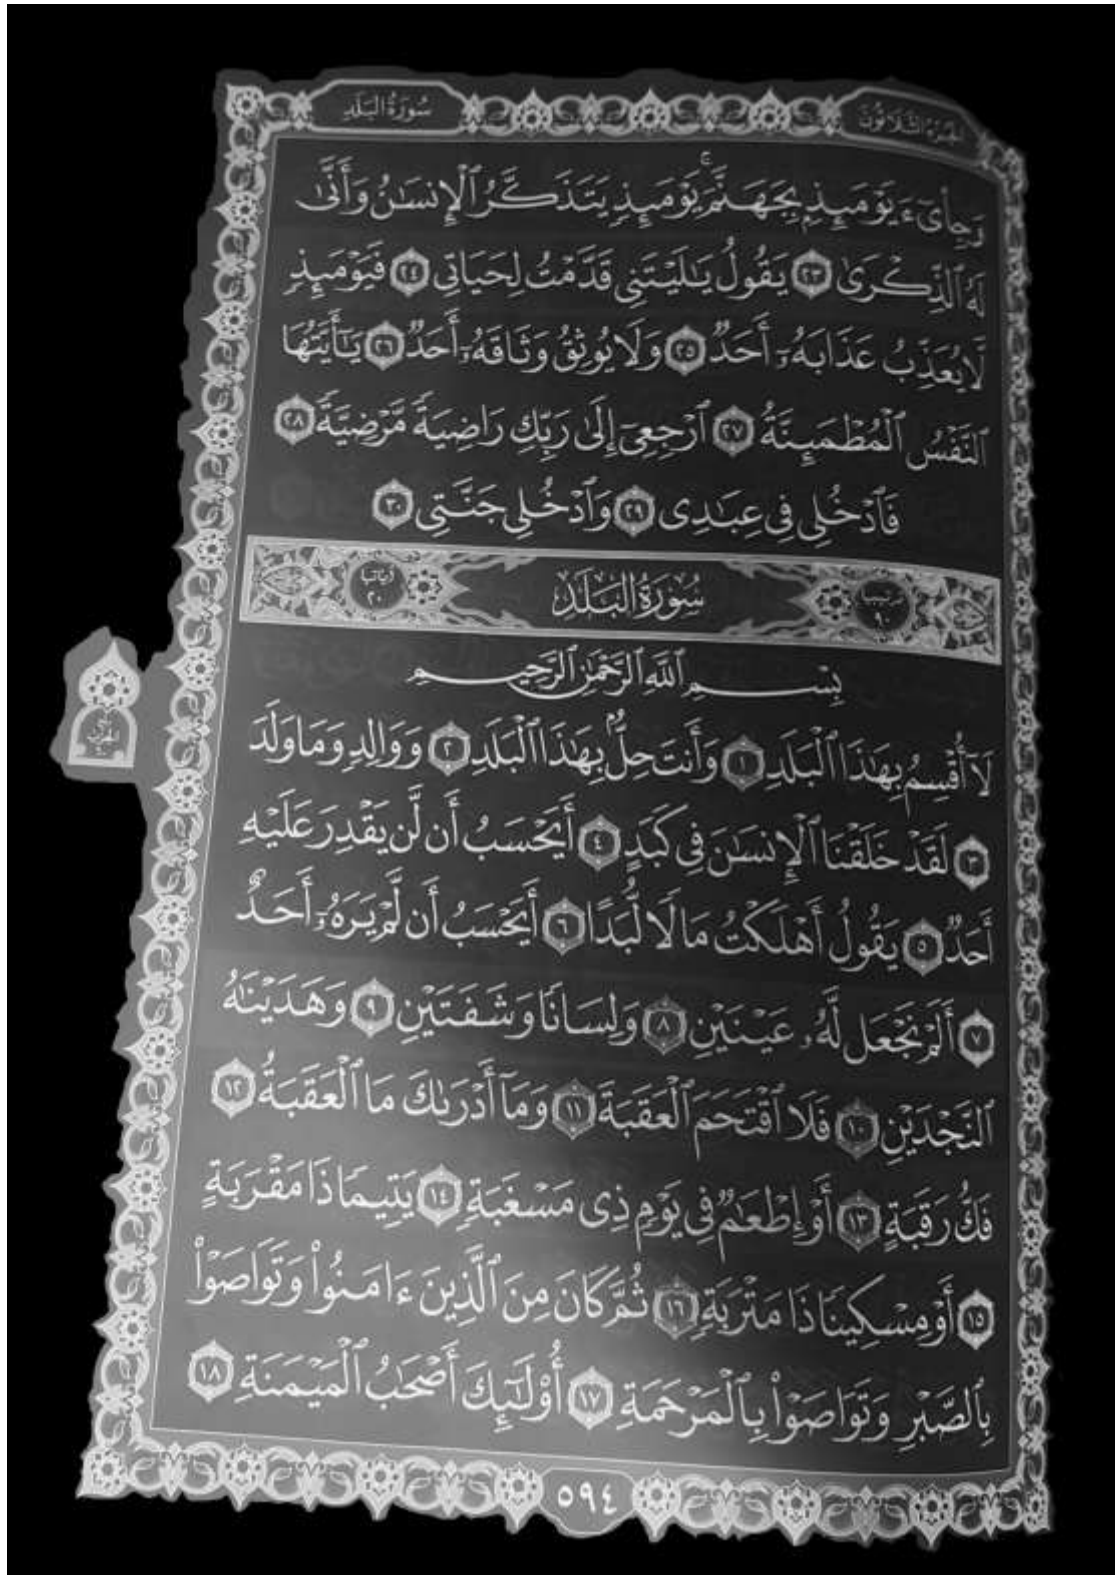 الجزء الثلاثون
سورة البلد
وَجِاْىٓءَ يَوْمَئِذِۭ بِجَهَنَّمَ ۚ يَوْمَئِذٍ يَتَذَكَّرُ ٱلْإِنسَٰنُ وَأَنَّىٰ
لَهُ ٱلذِّكْرَىٰ ٢٣ يَقُولُ يَٰلَيْتَنِى قَدَّمْتُ لِحَيَاتِى ٢٤ فَيَوْمَئِذٍ
لَّا يُعَذِّبُ عَذَابَهُۥٓ أَحَدٌ ٢٥ وَلَا يُوثِقُ وَثَاقَهُۥٓ أَحَدٌ ٢٦ يَٰٓأَيَّتُهَا
ٱلنَّفْسُ ٱلْمُطْمَئِنَّةُ ٢٧ ٱرْجِعِىٓ إِلَىٰ رَبِّكِ رَاضِيَةً مَّرْضِيَّةً ٢٨
فَٱدْخُلِى فِى عِبَٰدِى ٢٩ وَٱدْخُلِى جَنَّتِى ٣٠
ترتيبها ٩٠ سُورَةُ الْبَلَدِ آياتها ٢٠
بِسْمِ ٱللَّهِ ٱلرَّحْمَٰنِ ٱلرَّحِيمِ
لَآ أُقْسِمُ بِهَٰذَا ٱلْبَلَدِ ١ وَأَنتَ حِلٌّۢ بِهَٰذَا ٱلْبَلَدِ ٢ وَوَالِدٍ وَمَا وَلَدَ
٣ لَقَدْ خَلَقْنَا ٱلْإِنسَٰنَ فِى كَبَدٍ ٤ أَيَحْسَبُ أَن لَّن يَقْدِرَ عَلَيْهِ
أَحَدٌ ٥ يَقُولُ أَهْلَكْتُ مَالًا لُّبَدًا ٦ أَيَحْسَبُ أَن لَّمْ يَرَهُۥٓ أَحَدٌ
٧ أَلَمْ نَجْعَل لَّهُۥ عَيْنَيْنِ ٨ وَلِسَانًا وَشَفَتَيْنِ ٩ وَهَدَيْنَٰهُ
ٱلنَّجْدَيْنِ ١٠ فَلَا ٱقْتَحَمَ ٱلْعَقَبَةَ ١١ وَمَآ أَدْرَىٰكَ مَا ٱلْعَقَبَةُ ١٢
فَكُّ رَقَبَةٍ ١٣ أَوْ إِطْعَٰمٌ فِى يَوْمٍ ذِى مَسْغَبَةٍ ١٤ يَتِيمًا ذَا مَقْرَبَةٍ
١٥ أَوْ مِسْكِينًا ذَا مَتْرَبَةٍ ١٦ ثُمَّ كَانَ مِنَ ٱلَّذِينَ ءَامَنُوا۟ وَتَوَاصَوْا۟
بِٱلصَّبْرِ وَتَوَاصَوْا۟ بِٱلْمَرْحَمَةِ ١٧ أُو۟لَٰٓئِكَ أَصْحَٰبُ ٱلْمَيْمَنَةِ ١٨
٥٩٤